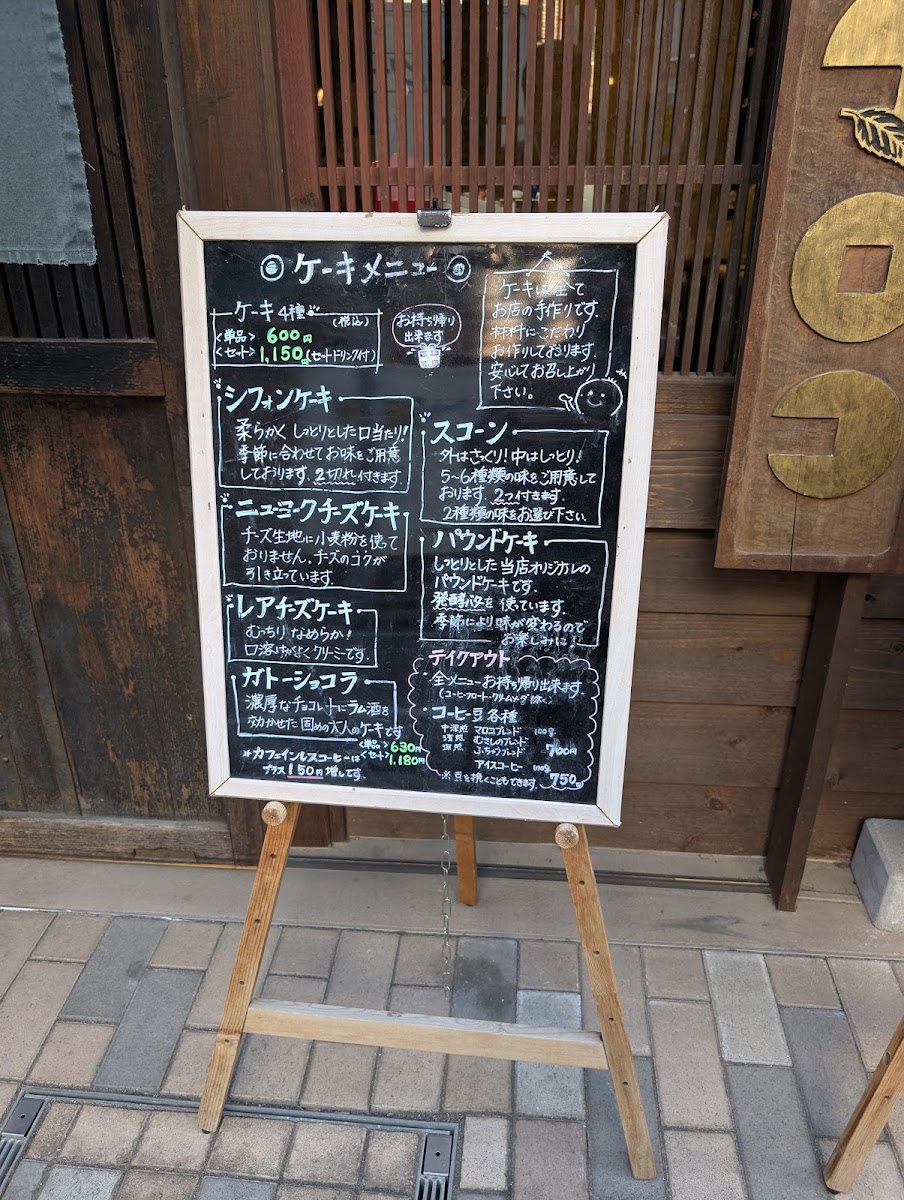 ケーキメニュー
ケーキ4種
(税込)
<単品> 600円
<セット> 1,150円(セットドリンク付)
お持ち帰り
出来ます
ケーキは全て
お店の手作りです。
材料にこだわり
お作りしております。
安心してお召し上がり
下さい。
シフォンケーキ
柔らかくしっとりとした口当たり!
季節に合わせてお味をご用意
しております。2切れ付きます。
ニューヨークチーズケーキ
チーズ生地に小麦粉を使って
おりません、チーズのコクが
引き立っています。
レアチーズケーキ
むっちりなめらか!
口溶けがよくクリーミーです。
ガトーショコラ
濃厚なチョコレートにラム酒を
効かせた固めの大人のケーキです
<単品> 630円
<セット> 1,180円
*カフェインレスコーヒーは
プラス150円増しです。
スコーン
外はさっくり!中はしっとり!
5~6種類の味をご用意して
おります。2つ付きます。
2種類の味をお選び下さい。
パウンドケーキ
しっとりとした当店オリジナルの
パウンドケーキです。
発酵バターを使っています。
季節により味が変わるので
お楽しみに!
テイクアウト
全メニューお持ち帰り出来ます。
(コーヒーフロート・クリームソーダ除く)
コーヒー豆各種
中深煎 マロコブレンド 100g
浅煎 むさしのブレンド
深煎 ふちゅうブレンド 700円
アイスコーヒー 100g
※豆を挽くこともできます。 750円
コ